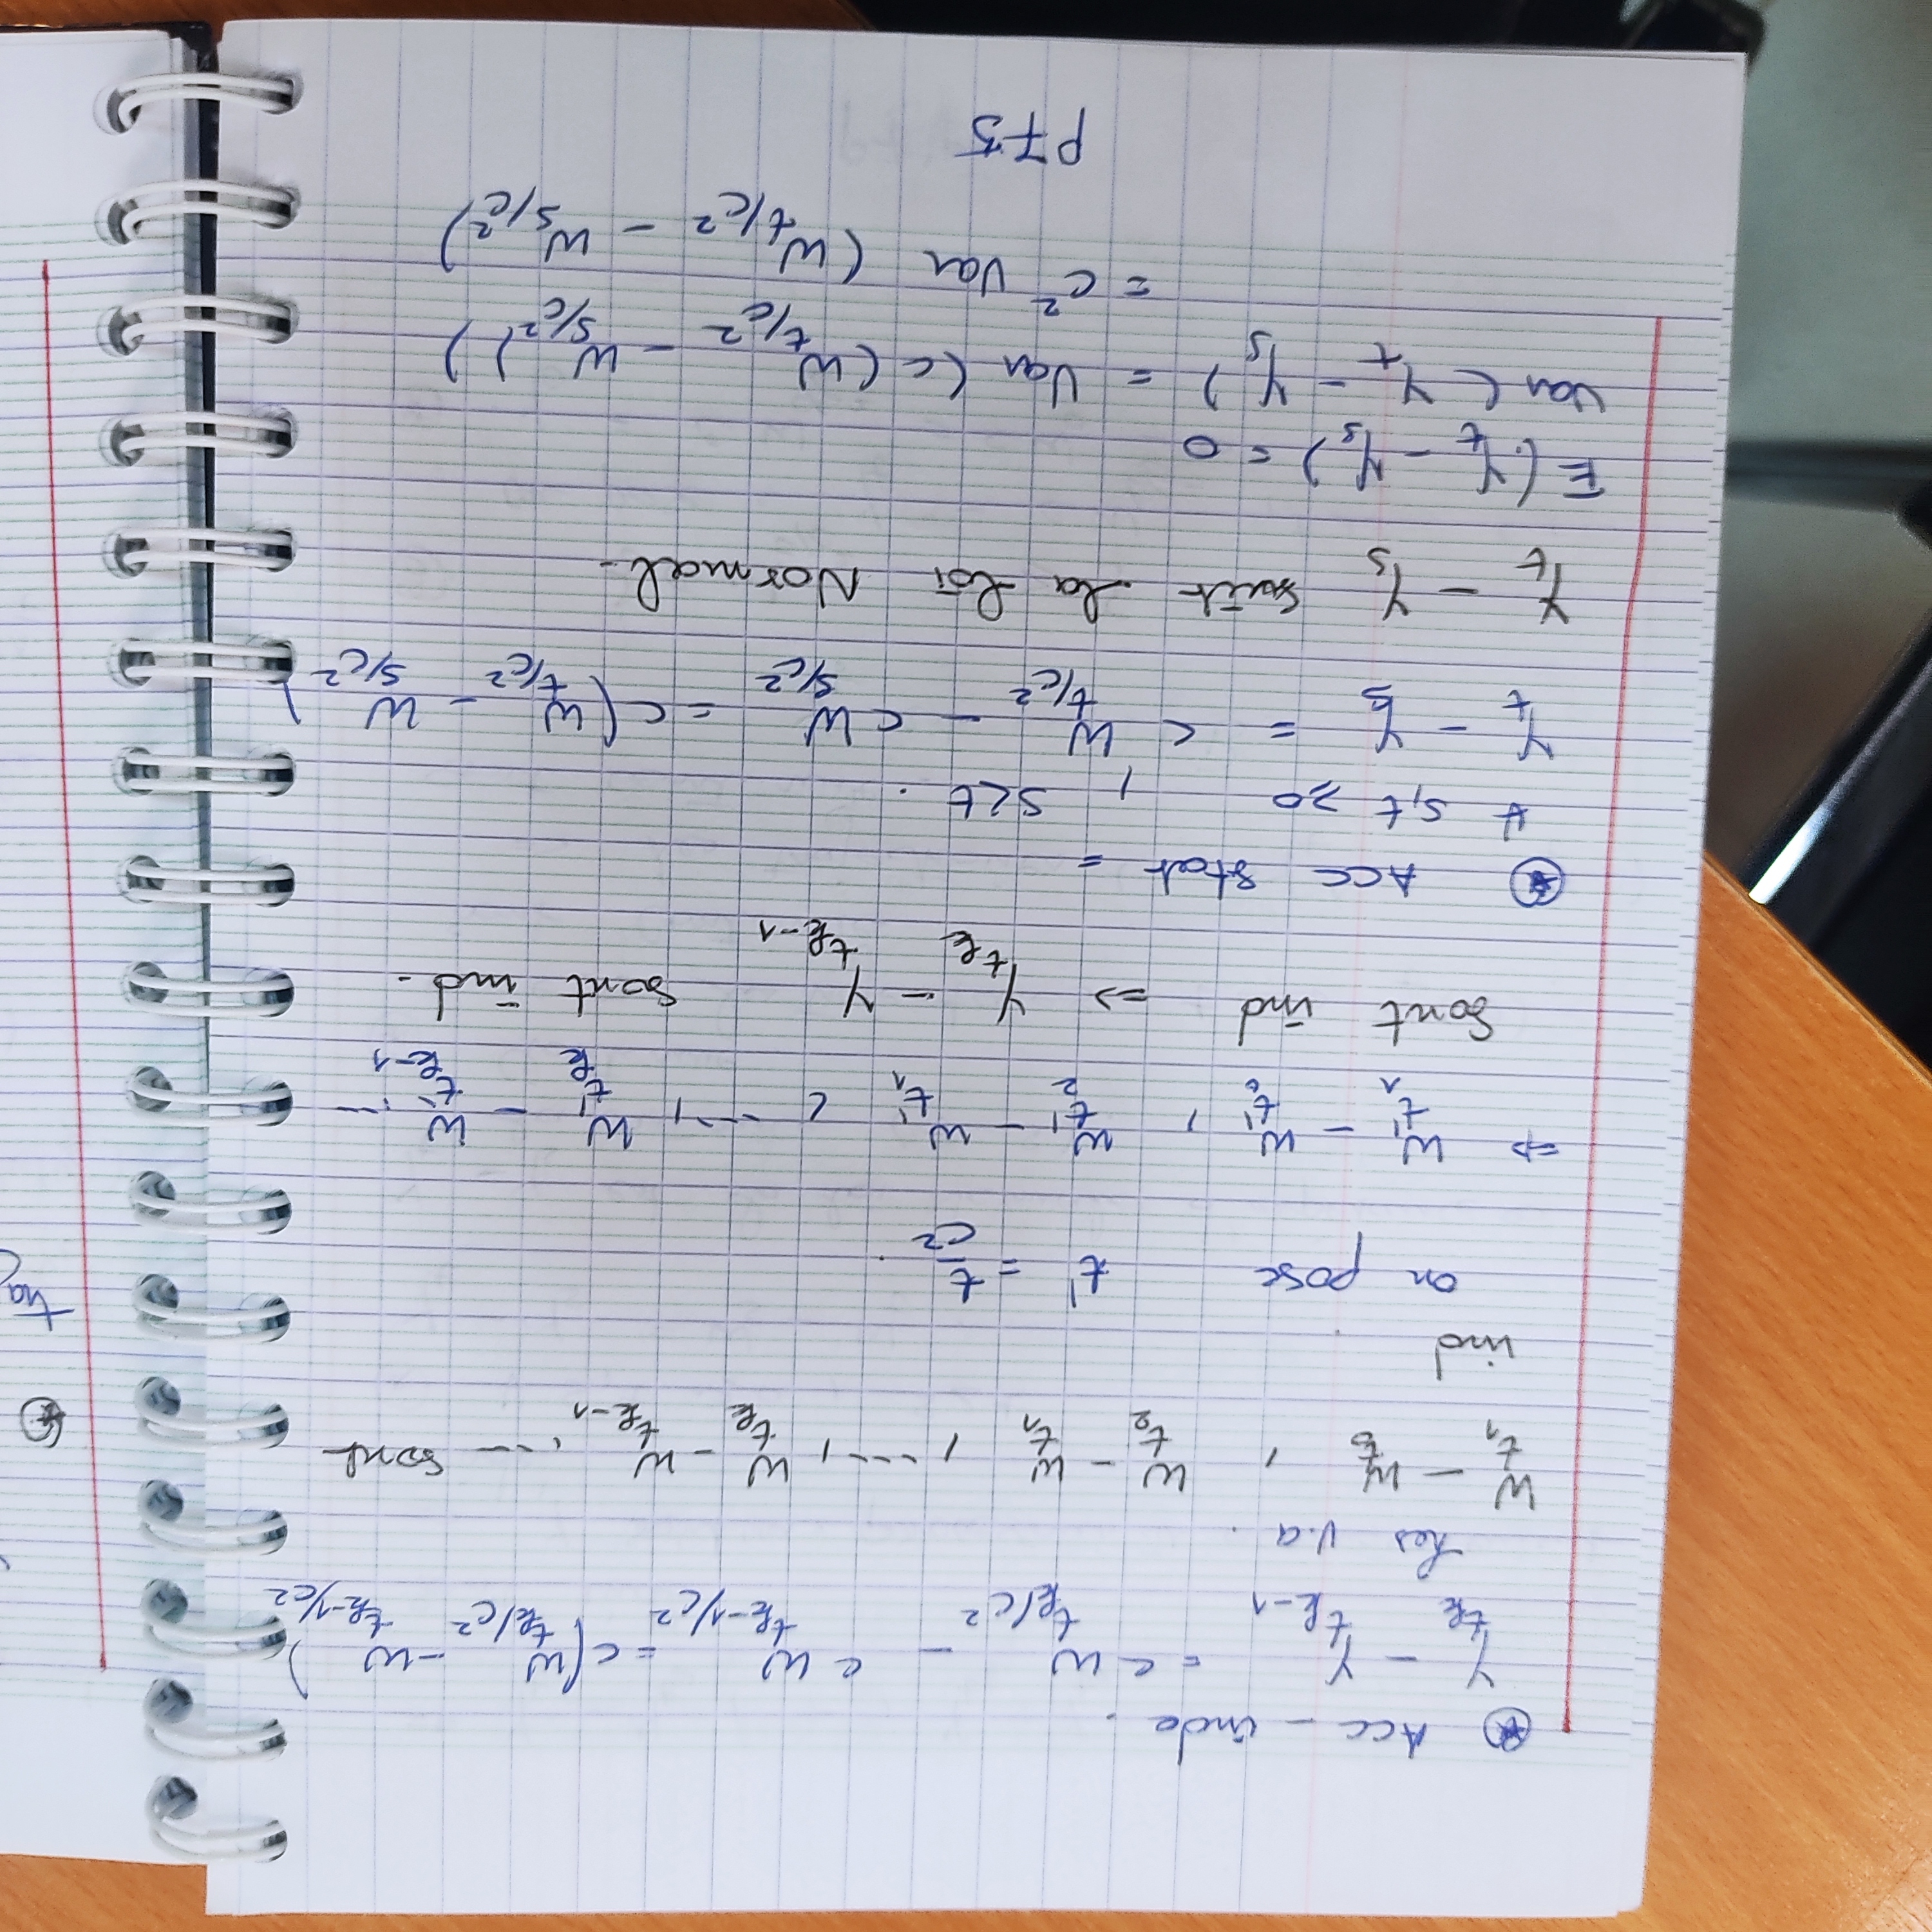 ⊛ Acc - inde.
Y_{t_k} - Y_{t_{k-1}} = c W_{t_k/c²} - c W_{t_{k-1}/c²} = c(W_{t_k/c²} - W_{t_{k-1}/c²})
Les v.a.
W_{t_1} - W_{t_0}, W_{t_2} - W_{t_1}, ---, W_{t_k} - W_{t_{k-1}}, --- sont
ind
on pose t' = t/c².
⇒ W_{t'_1} - W_{t'_0}, W_{t'_2} - W_{t'_1}, ---, W_{t'_k} - W_{t'_{k-1}} ---
Sont ind ⇒ Y_{t_k} - Y_{t_{k-1}} sont ind.
⊛ Acc stat =
∀ s,t ≥ 0, s<t.
Y_t - Y_s = c W_{t/c²} - c W_{s/c²} = c(W_{t/c²} - W_{s/c²})
Y_t - Y_s suit la loi Normal.
E(Y_t - Y_s) = 0
Var(Y_t - Y_s) = Var(c(W_{t/c²} - W_{s/c²}))
= c² Var (W_{t/c²} - W_{s/c²})
P75